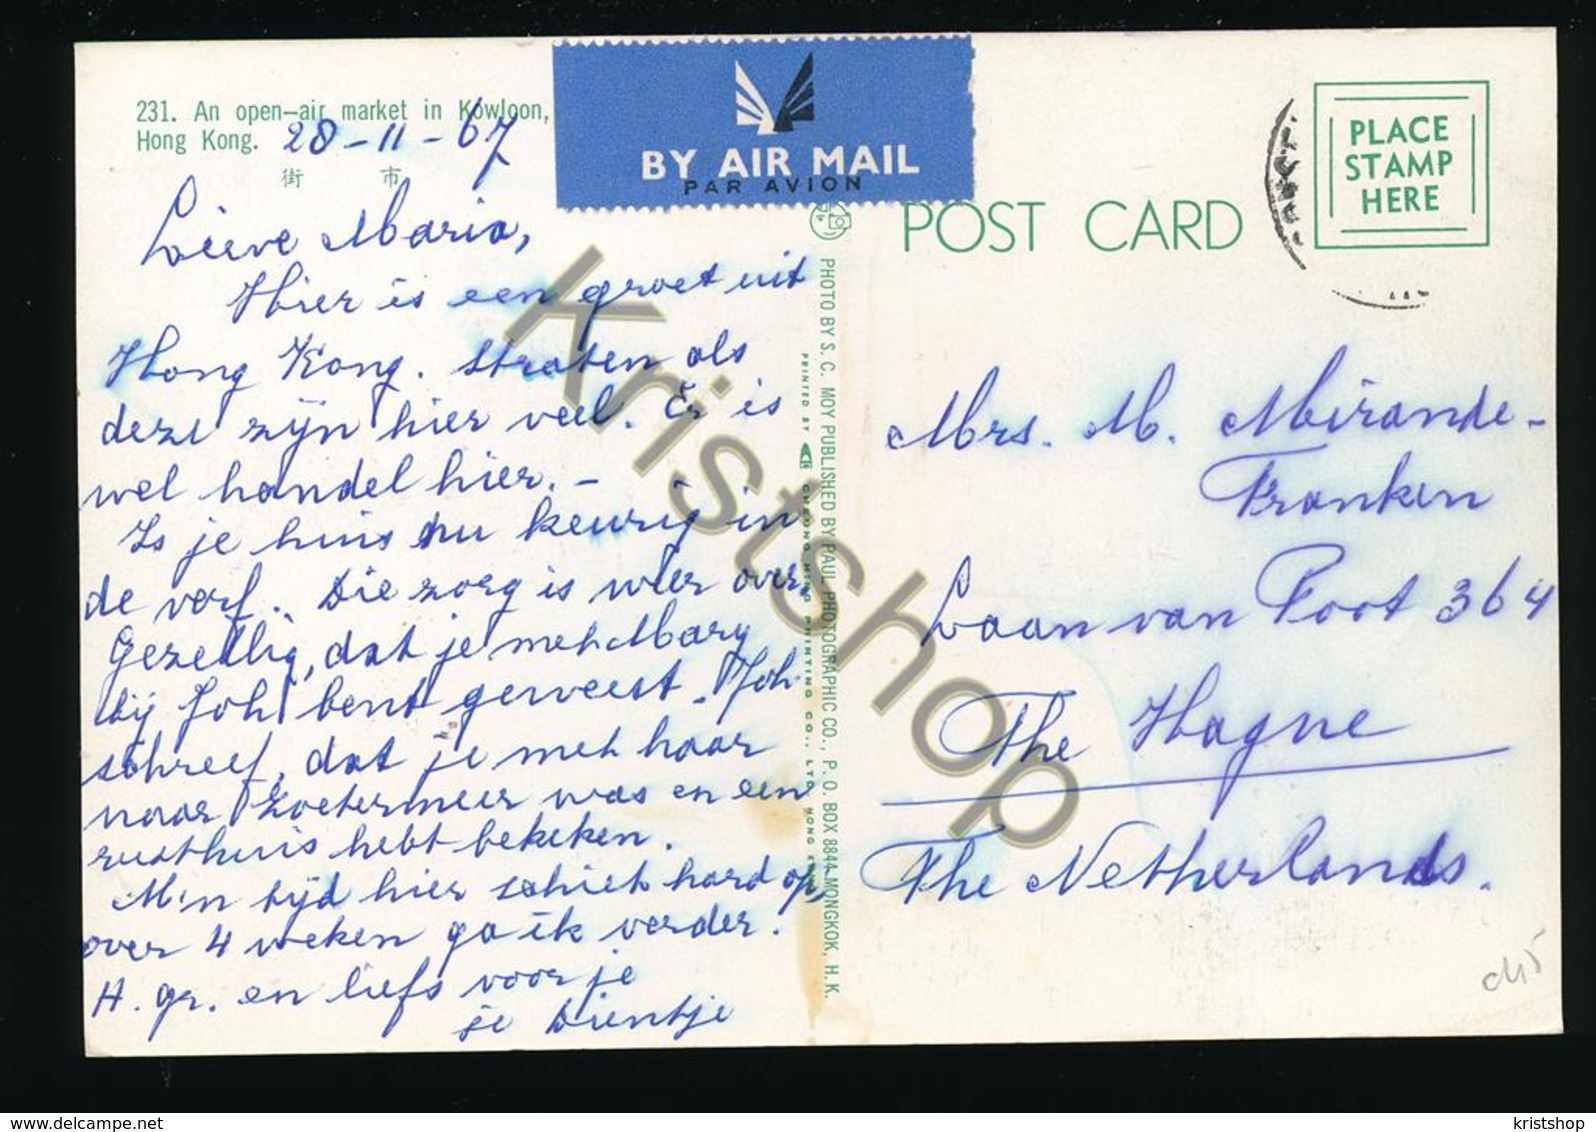 231. An open-air market in Kowloon,
Hong Kong. 28-11-67
街 市
BY AIR MAIL
PAR AVION
PLACE
STAMP
HERE
POST CARD
Lieve Maria,
Hier is een groet uit
Hong Kong. Straten als
deze zijn hier veel. Er is
wel handel hier. -
Is je huis nu keurig in
de verf. Die zorg is weer over
Gezellig, dat je met Mary
bij Joh bent geweest. Joh.
schreef, dat je met haar
naar Zoetermeer was en een
rusthuis hebt bekeken.
M'n tijd hier schiet hard op,
over 4 weken ga ik verder.
H. gr. en liefs voor je
je Dientje
PHOTO BY S. C. MOY PUBLISHED BY PAUL PHOTOGRAPHIC CO., P. O. BOX 8844 MONGKOK, H. K.
PRINTED BY CHEONG HING PRINTING CO., LTD. HONG KONG
Mrs. M. Mirande-
Franken
Laan van Poot 364
The Hague
The Netherlands.
Kristshop
www.delcampe.net
kristshop